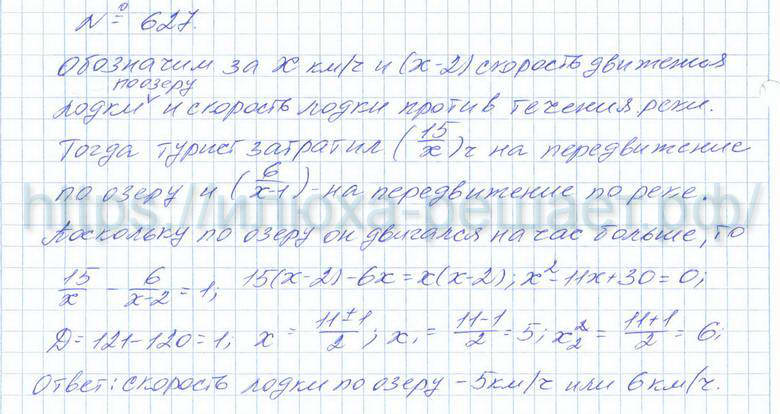 № 627.
Обозначим за x км/ч и (x-2) скорость движения
по озеру
лодки и скорость лодки против течения реки.
Тогда турист затратил (15/x) ч на передвижение
по озеру и (6/x-1) - на передвижение по реке.
https://илюха-решает.рф/
Поскольку по озеру он двигался на час больше, то
15/x - 6/x-2 = 1; 15(x-2)-6x=x(x-2); x²-11x+30=0;
D=121-120=1; x = 11±1/2; x₁ = 11-1/2 = 5; x₂ = 11+1/2 = 6;
Ответ: скорость лодки по озеру - 5км/ч или 6км/ч.